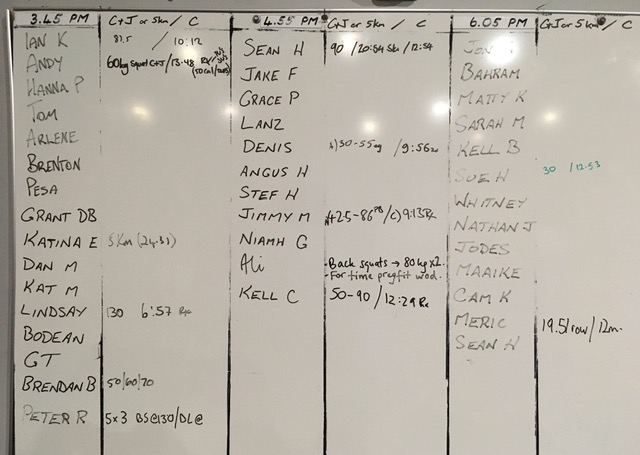 3.45 PM C+J or 5km / C
IAN K 87.5 / 10:12
ANDY 60kg Squat C+J / 13:48 Rx
HANNA P
TOM
ARLENE
BRENTON
PESA
GRANT DB
KATINA E 5km
DAN M
KAT M
LINDSAY 130 6:57 Rx
BODEAN
GT
BRENDAN B 50/60/70
PETER R 5x3 BS@130/DL@
4.55 PM C+J or 5km / C
SEAN H 90 / 20:54 5k / 12:54
JAKE F
GRACE P
LANZ
DENIS 30-55kg / 9:56
ANGUS H
STEF H
JIMMY M 42.5-86 PB / C) 9:13 Rx
NIAMH G
Ali - Back squats → 80kg x2
- For time pregfit wod.
KELL C 50-90 / 12:29 Rx
6.05 PM C+J or 5km / C
BAHRAM
MATTY K
SARAH M
KELL B
SUE H 30 / 12:53
WHITNEY
NATHAN J
JODES
MAAIKE
CAM K
MERIC 19.51 row / 12m
SEAN H